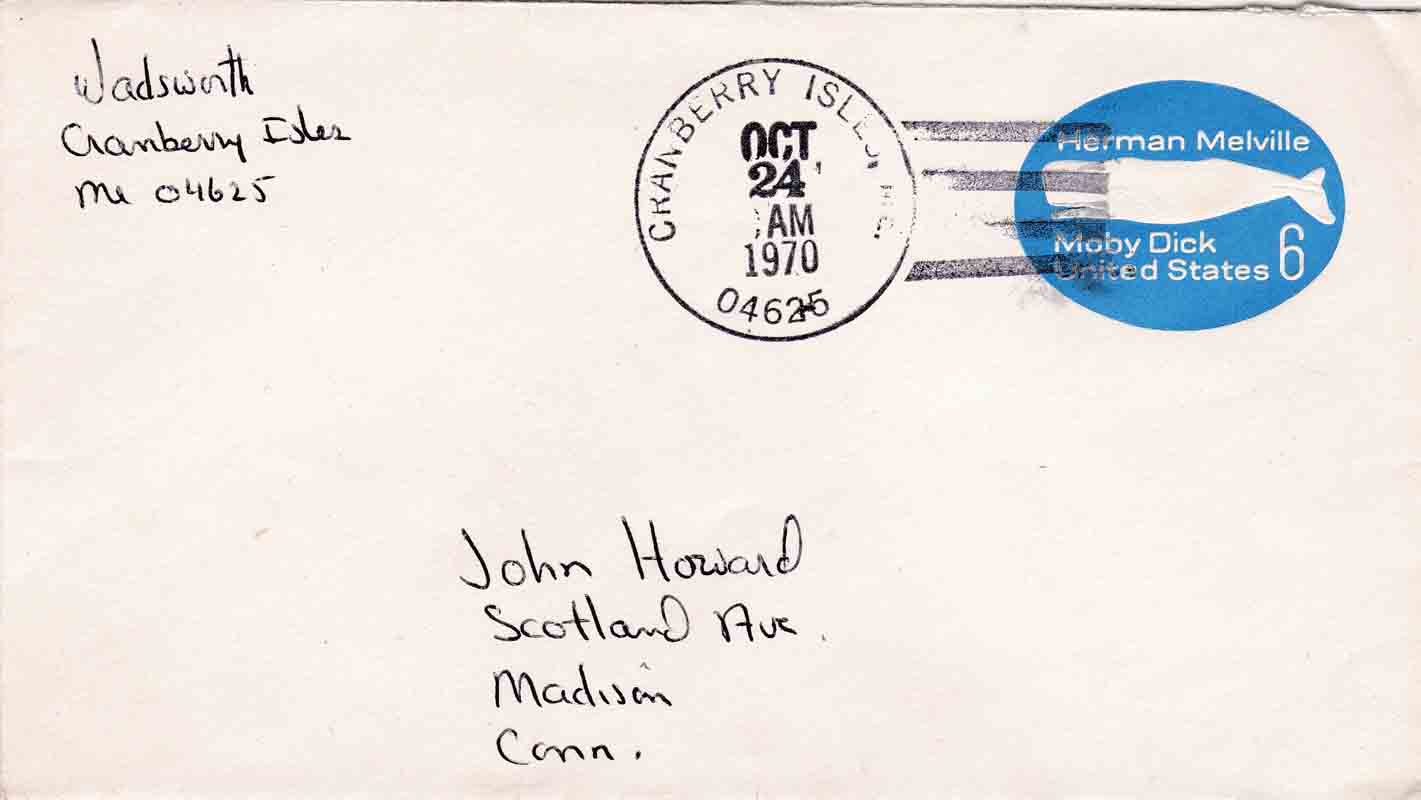 Wadsworth
Cranberry Isles
Me 04625
CRANBERRY ISLES, ME.
OCT
24
AM
1970
04625
Herman Melville
Moby Dick
United States 6
John Howard
Scotland Ave.
Madison
Conn.